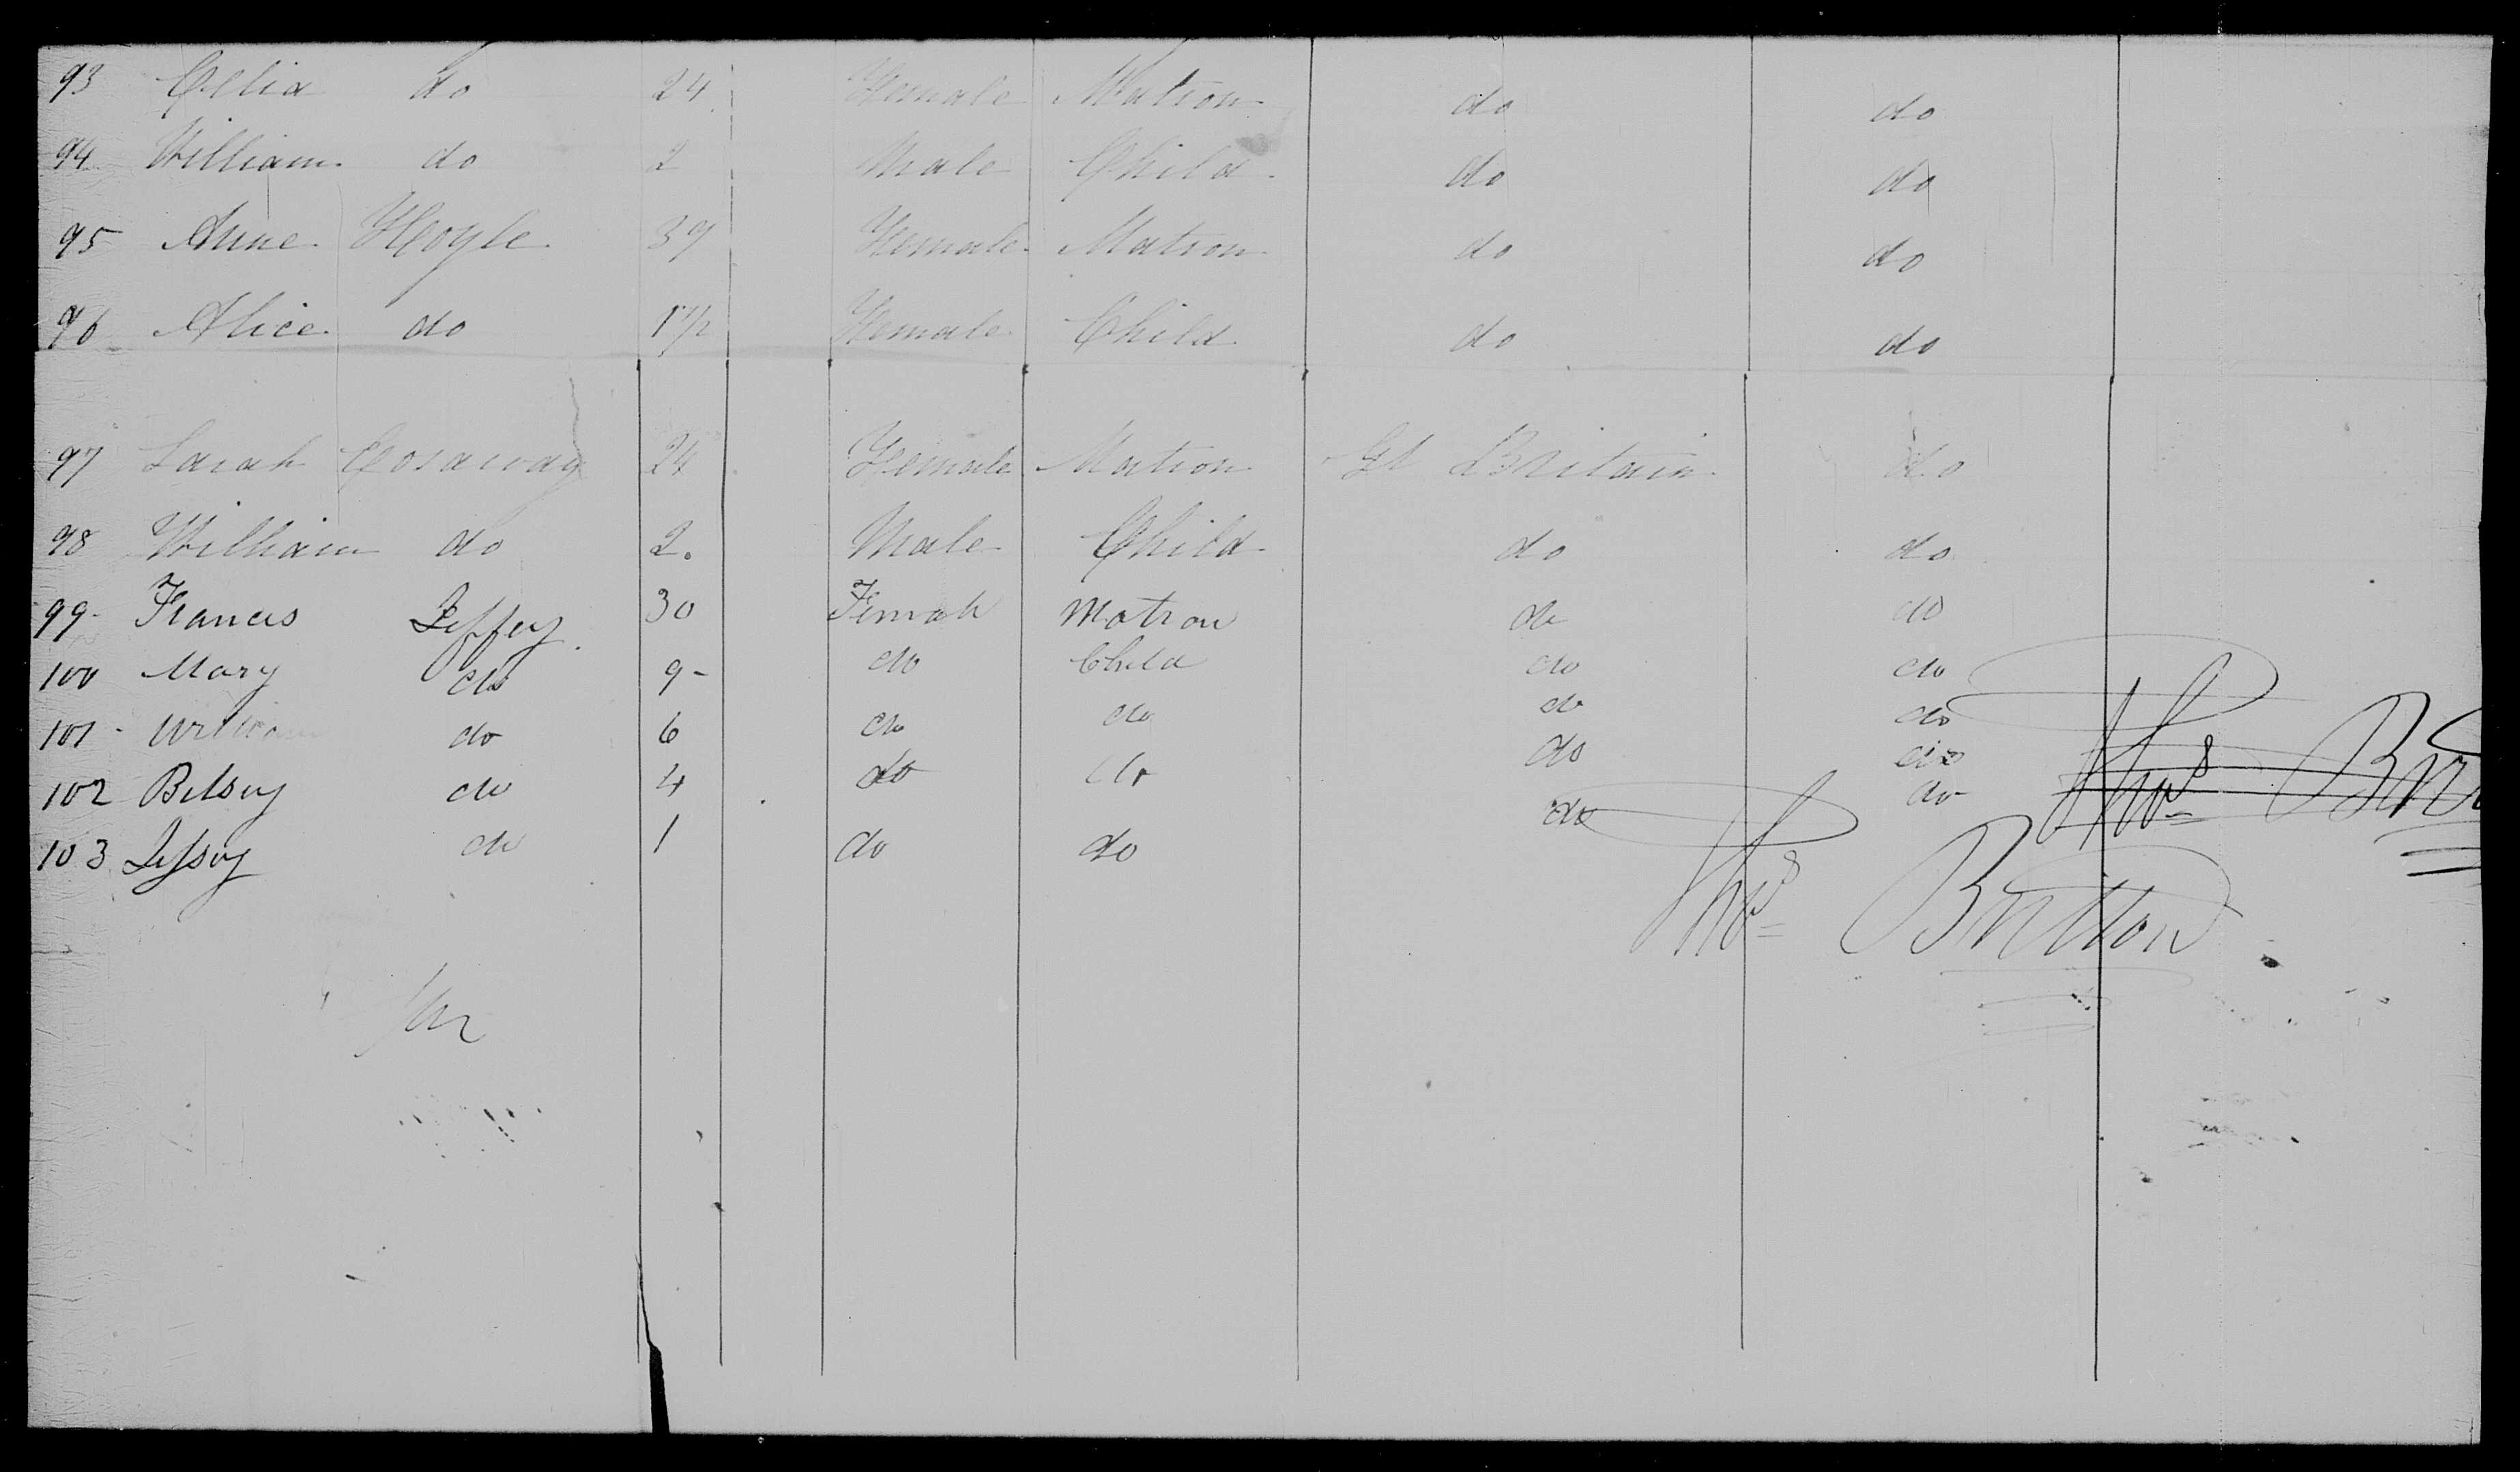 93 Celia do 24 Female Matron do do
94 William do 2 Male Child do do
95 Anne Hoyle 39 Female Matron do do
96 Alice do 1 1/2 Female Child do do
97 Sarah Cosaway 24 Female Matron Gt Britain do
98 William do 2. Male Child do do
99- Francis Jeffey 30 Femah Matron do do
100 Mary do 9- do Child do do
101- William do 6 do do do do
102 Betsey do 4 do do do do
103 Jessey do 1 do do do do
Thos Brit
Thos Britton